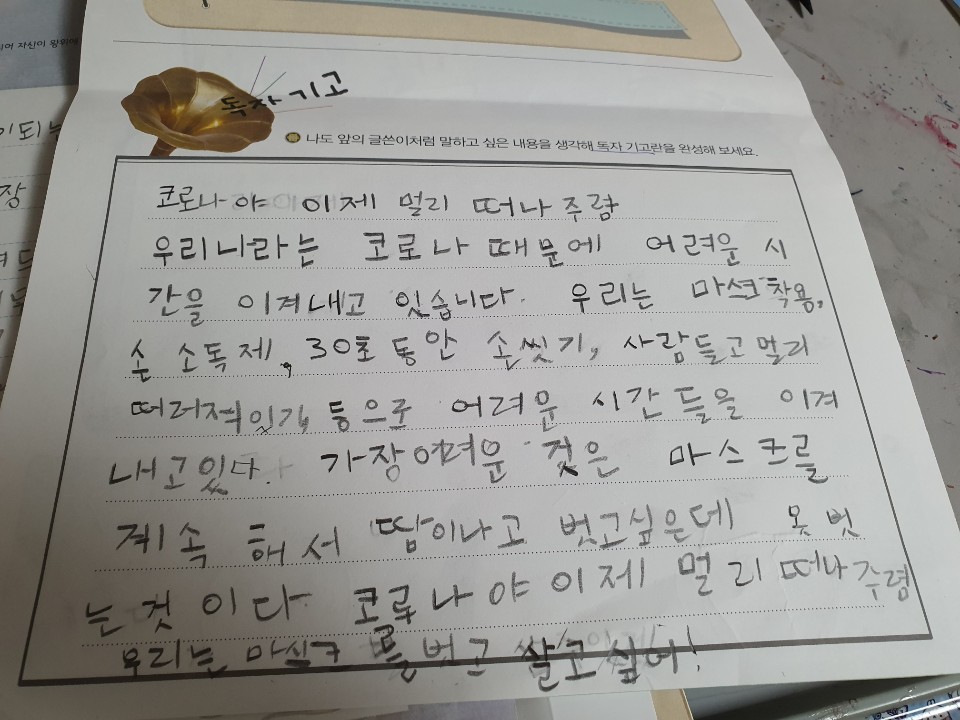 이어 자신이 왕위에
이되는
장
독자 기고
나도 앞의 글쓴이처럼 말하고 싶은 내용을 생각해 독자 기고란을 완성해 보세요.
코로나 야 이제 멀리 떠나 주렴
우리나라는 코로나 때문에 어려운 시
간을 이겨내고 있습니다. 우리는 마스크 착용,
손 소독제, 30초 동안 손씻기, 사람들고 멀리
떠러져있기, 등으로 어려운 시간 들을 이겨
내고있다. 가장어려운 것은 마스크를
계속 해서 땀이나고 벗고싶은데 못 벗
는 것 이다 코로나 야 이제 멀리 떠나 주렴
우리는 마스크 를 벗고 살고 싶어!